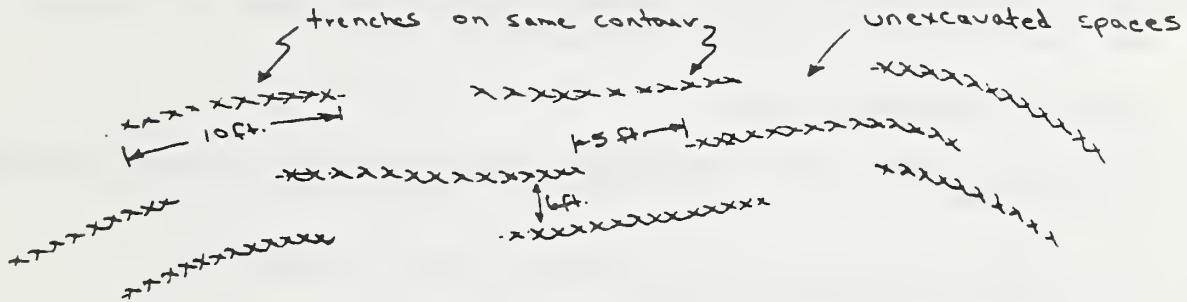 trenches on same contour
unexcavated spaces
10ft.
5 ft
6ft.